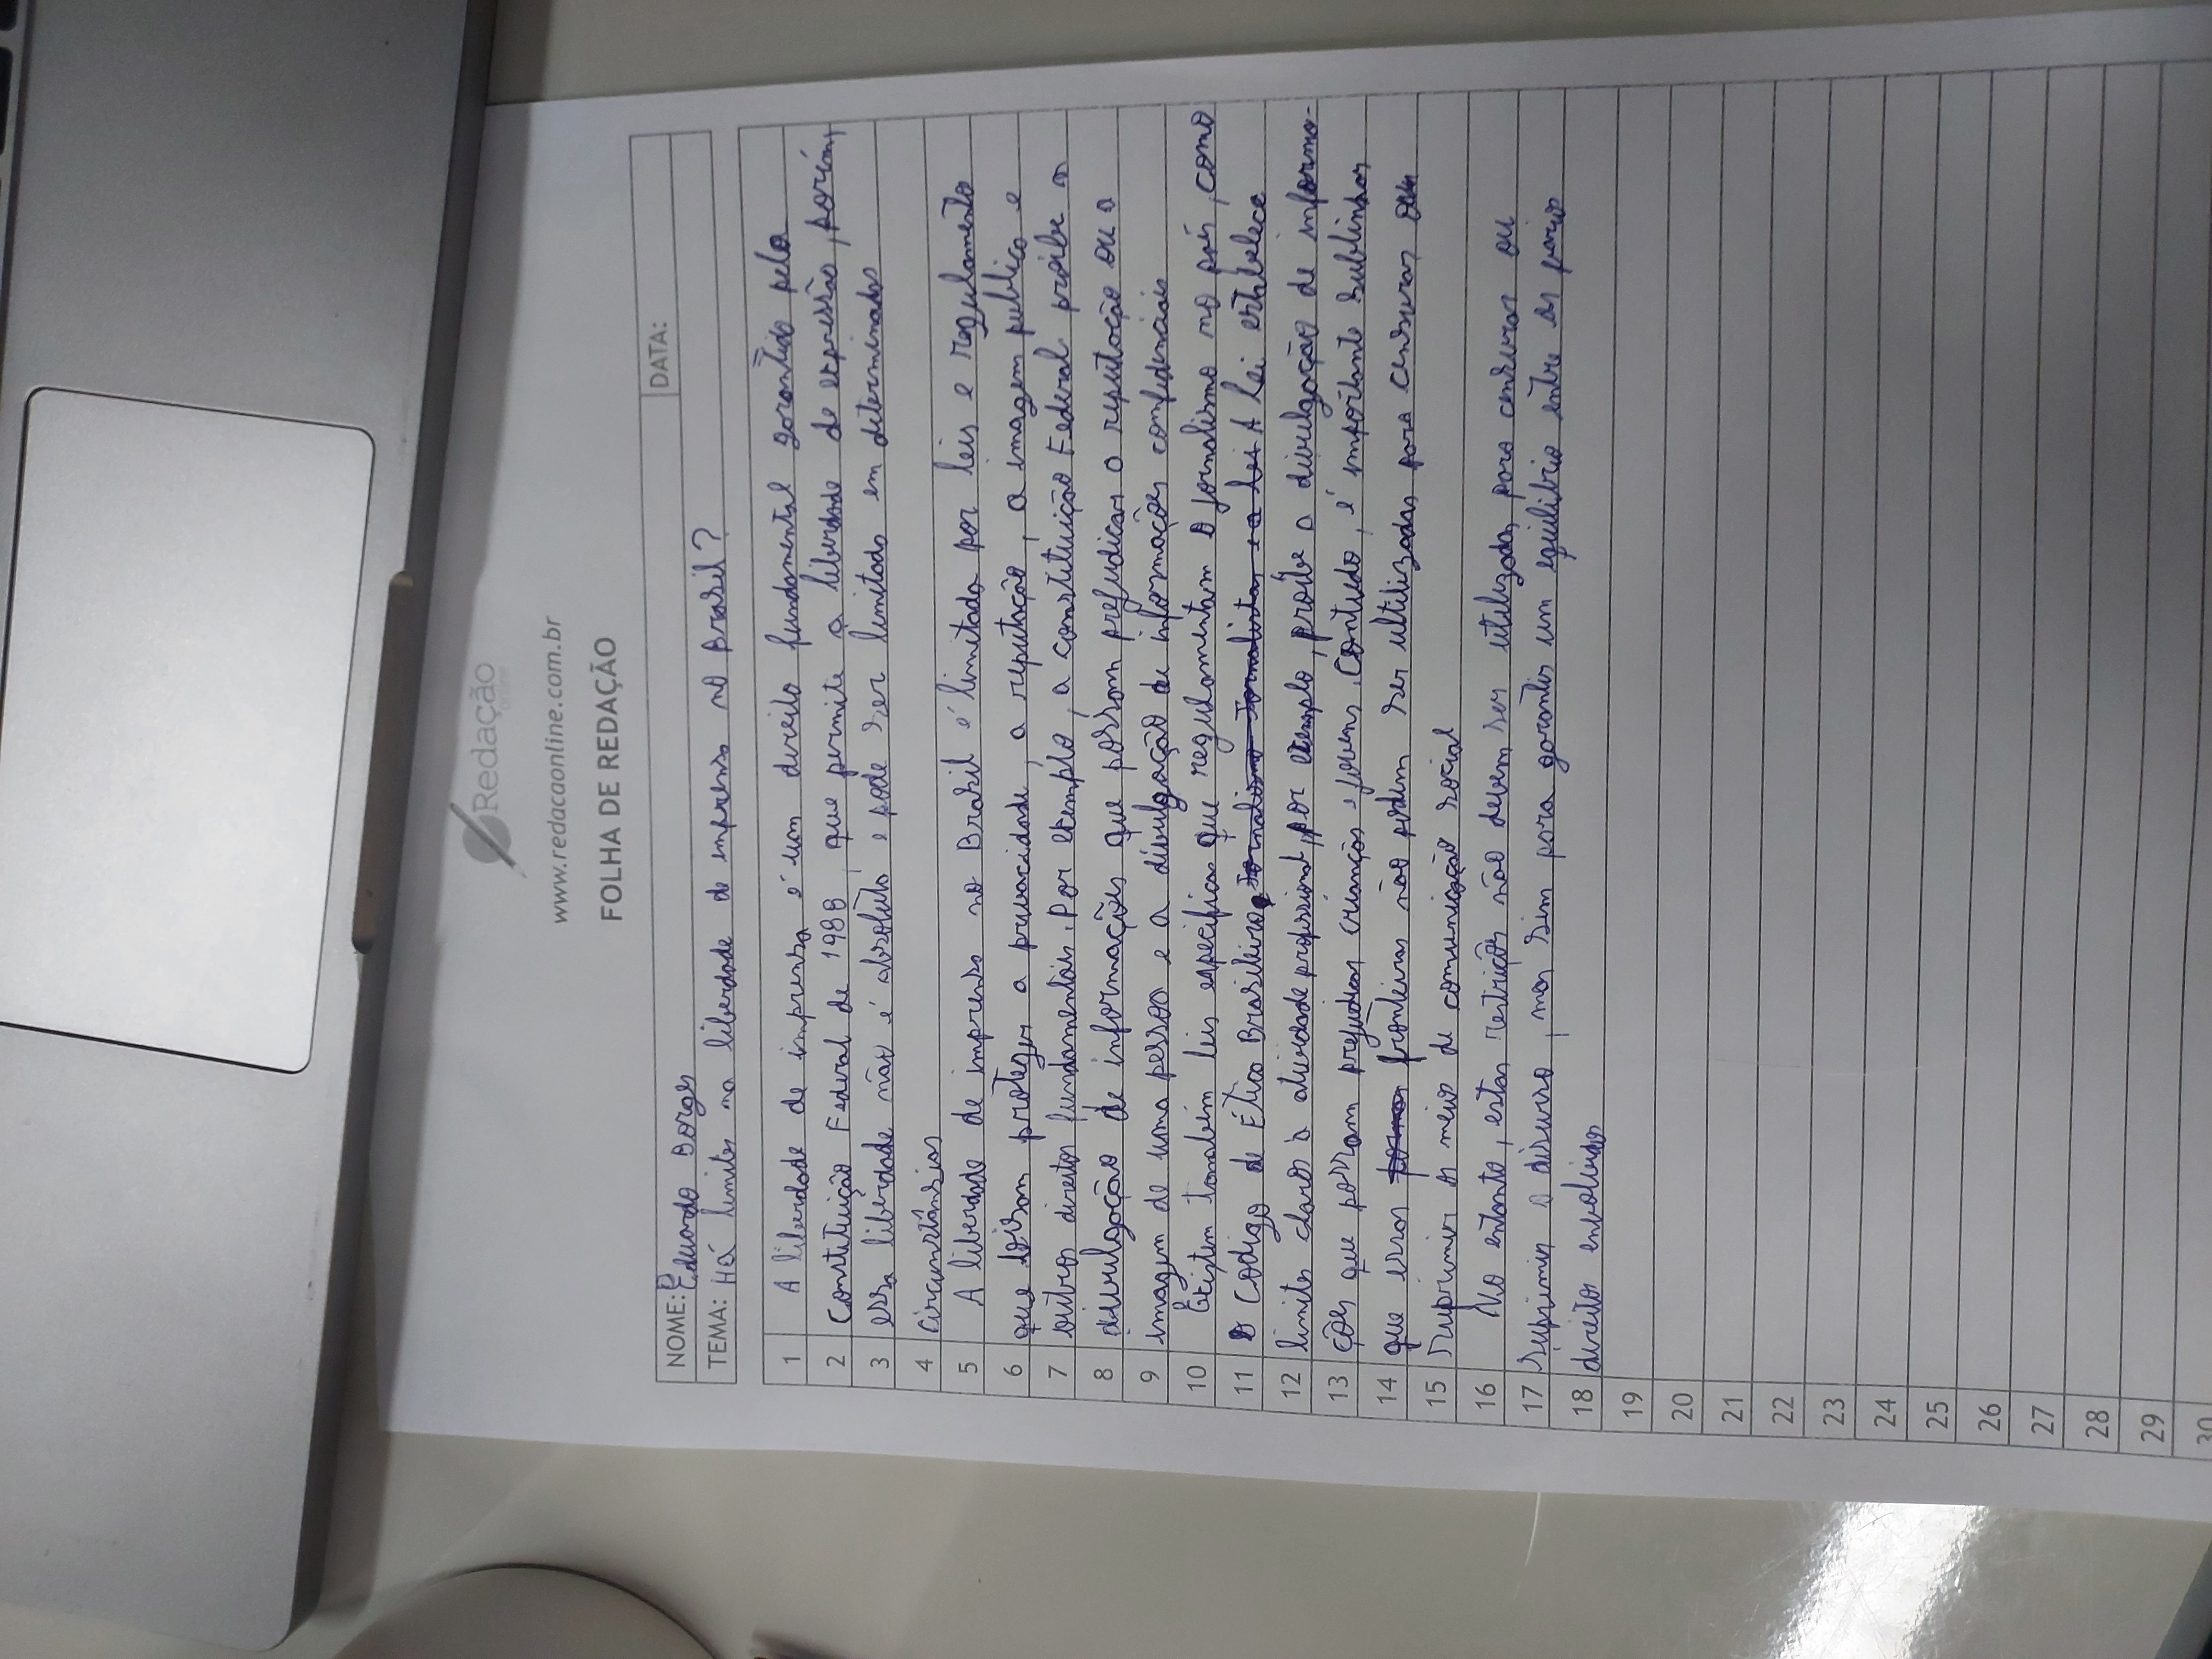 Redação
online
www.redacaonline.com.br
FOLHA DE REDAÇÃO
NOME: Eduardo Borges DATA:
TEMA: Há limites na liberdade de imprensa no Brasil?
1 A liberdade de imprensa é um direito fundamental garantido pela
2 Constituição Federal de 1988, que permite a liberdade de expressão, porém,
3 essa liberdade não é absoluta e pode ser limitada em determinadas
4 circunstânsias
5 A liberdade de imprensa no Brasil é limitada por leis e regulamento
6 que visam proteger a privacidade, a reputação, a imagem publica e
7 outros direitos fundamentais. Por exemplo, a constituição Federal proibe a
8 divulgação de informações que possam prejudicar a reputação ou a
9 imagem de uma pessoa e a divulgação de informações confidenciais
10 Existem também leis especificas que regulamentam o jornalismo no país, como
11 o Codigo de Ética Brasileiro. Jornalismo Jornalistas e a lei A lei estabelece
12 limites claros à atividade profissional, por exemplo, proíbe a divulgação de informa-
13 ções que possam prejudicar crianças e jovens. Contudo, é importante sublinhar
14 que essas formas fronteiras não podem ser ultilizadas para censurar ou
15 suprimir os meios de comunicação social
16 No entanto, estas restrições não devem ser utilizadas para censurar ou
17 suprimir o discurso, mas sim para garantir um equilibrio entre os varios
18 direitos envolvidos
19
20
21
22
23
24
25
26
27
28
29
30